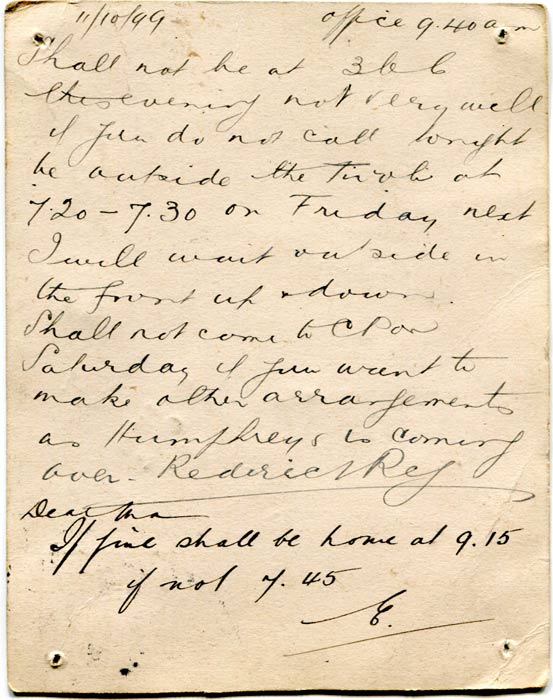 11/10/99 office 9.40am
Shall not be at 3
this evening not very well
if you do not call tonight
be outside the Tivoli at
7.20 – 7.30 on Friday next
I will wait outside in
the front up & down.
Shall not come to CP on
Saturday if you want to
make other arrangements
as Humphreys is coming
over.
Dear Ma
If fine shall be home at 9.15
if not 7.45
E.